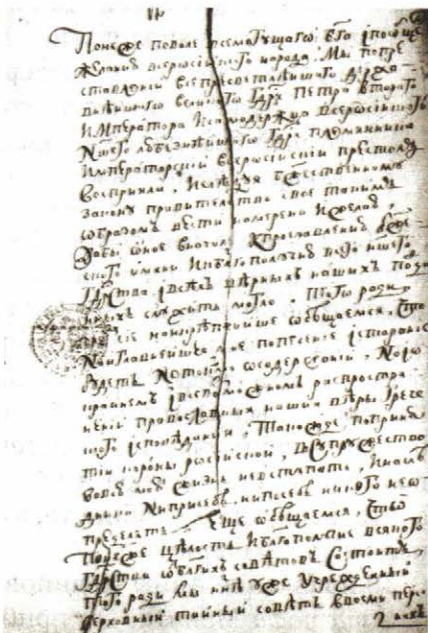 Понеже поволе всемогущаго бга іпообще
желанию всеросиского народа. Мы попре
ставлении всепресветлеишаго держа
внеишаго великаго гдря петра втораго
императора исамодержца всеросиского
Ншего любезнеишаго гдря племянника
императорскии всеросиискии престолъ
восприяли, иследуя бжественному
закону правителство свое такимъ
образомъ вести намерена ижелаю,
дабы оное вначале кпрославлению бже
ского имени икблагополучию всего ншего
гдрства івсехъ верныхъ нашихъ подда
нныхъ служить могло. Того ради
чрезъ сие наикрепчаише обещаемся, что
наиглавнеишее мое попечение істарание
будетъ нетокмо осодержании, ноіо
краинемъ івсевозможномъ распростра
нениі православныя нашия веры грече
ского ісповедания, такожде поприня
тіи короны росиискои, всупружество
вовсю мою жизнь невступать, инаслѣ
дника ниприсебѣ нипосебѣ никого неоп
пределять Еще обещаемся, что
понеже целость иблагополучие всякого
гдрства отблагихъ советовъ состоитъ,
того ради мы нне уже учрежденныи
верховныи таиныи советъ ввосми пер